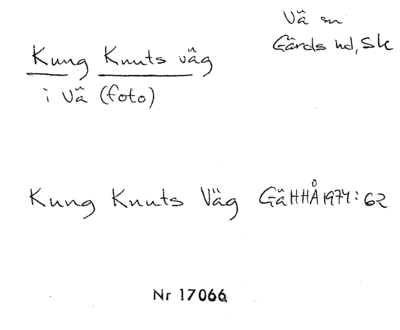 Vä sn
Gärds hd, Sk
Kung Knuts väg
i Vä (foto)
Kung Knuts Väg GäHHÅ 1974: 62
Nr 17066